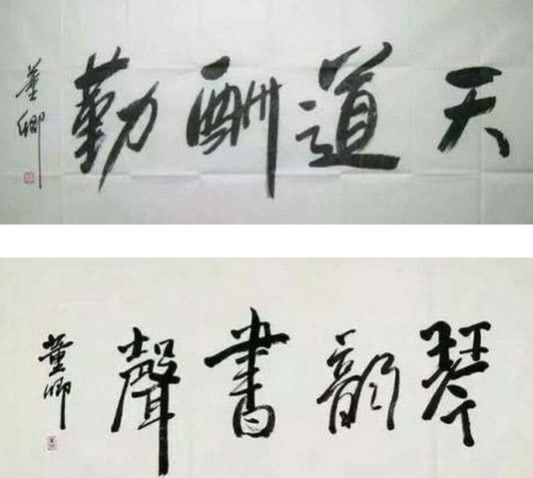 天道酬勤
董卿
琴韵書聲
董卿